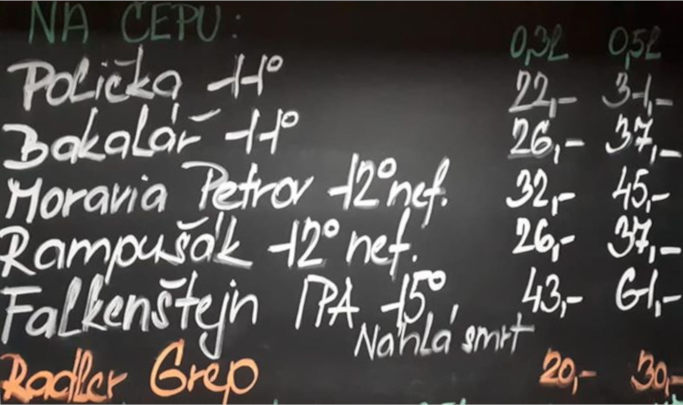 NA ČEPU: 0,3l 0,5l
Polička 11° 22,- 31,-
Bakalář 11° 26,- 37,-
Moravia Petrov 12° nef. 32,- 45,-
Rampušák 12° nef. 26,- 37,-
Falkenštejn IPA 15° 43,- 61,-
Náhlá smrt
Radler Grep 20,- 30,-